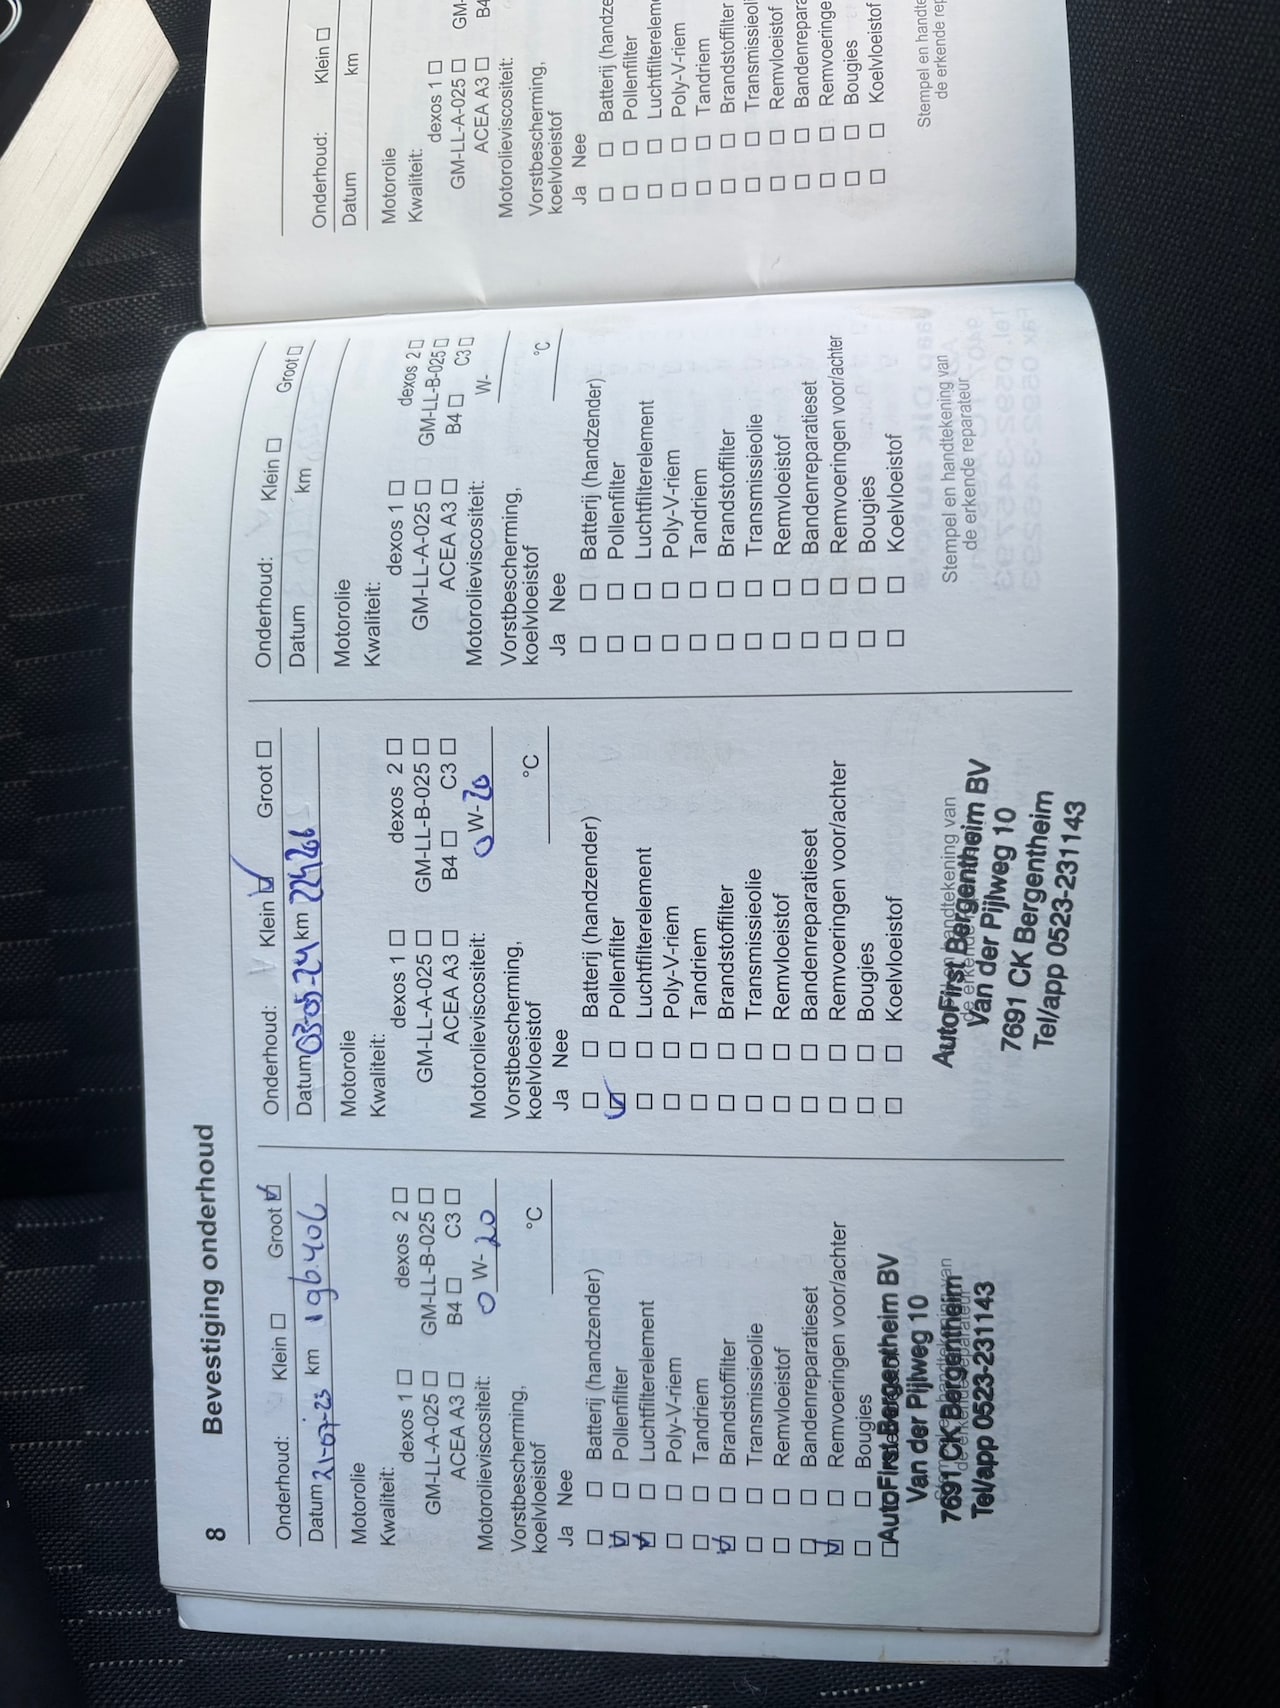 8 Bevestiging onderhoud
Onderhoud: Klein ☐ Groot ☑
Datum 21-07-23 km 196.406
Motorolie
Kwaliteit:
dexos 1 ☐ dexos 2 ☐
GM-LL-A-025 ☐ GM-LL-B-025 ☐
ACEA A3 ☐ B4 ☐ C3 ☐
Motorolieviscositeit: 0 W- 20
Vorstbescherming,
koelvloeistof °C
Ja Nee
☐ ☐ Batterij (handzender)
☑ ☐ Pollenfilter
☑ ☐ Luchtfilterelement
☐ ☐ Poly-V-riem
☐ ☐ Tandriem
☑ ☐ Brandstoffilter
☐ ☐ Transmissieolie
☐ ☐ Remvloeistof
☐ ☐ Bandenreparatieset
☑ ☐ Remvoeringen voor/achter
☐ ☐ Bougies
☐
AutoFirst Bergentheim BV
Van der Pijlweg 10
7691 CK Bergentheim
Tel/app 0523-231143
Onderhoud: Klein ☑ Groot ☐
Datum 03-05-24 km
Motorolie
Kwaliteit:
dexos 1 ☐ dexos 2 ☐
GM-LL-A-025 ☐ GM-LL-B-025 ☐
ACEA A3 ☐ B4 ☐ C3 ☐
Motorolieviscositeit: 0 W- 20
Vorstbescherming,
koelvloeistof °C
Ja Nee
☐ ☐ Batterij (handzender)
☑ ☐ Pollenfilter
☐ ☐ Luchtfilterelement
☐ ☐ Poly-V-riem
☐ ☐ Tandriem
☐ ☐ Brandstoffilter
☐ ☐ Transmissieolie
☐ ☐ Remvloeistof
☐ ☐ Bandenreparatieset
☐ ☐ Remvoeringen voor/achter
☐ ☐ Bougies
☐ ☐ Koelvloeistof
handtekening van
AutoFirst Bergentheim BV
Van der Pijlweg 10
7691 CK Bergentheim
Tel/app 0523-231143
Onderhoud: Klein ☐ Groot ☐
Datum km
Motorolie
Kwaliteit:
dexos 1 ☐ dexos 2 ☐
GM-LL-A-025 ☐ GM-LL-B-025 ☐
ACEA A3 ☐ B4 ☐ C3 ☐
Motorolieviscositeit: W-
Vorstbescherming,
koelvloeistof °C
Ja Nee
☐ ☐ Batterij (handzender)
☐ ☐ Pollenfilter
☐ ☐ Luchtfilterelement
☐ ☐ Poly-V-riem
☐ ☐ Tandriem
☐ ☐ Brandstoffilter
☐ ☐ Transmissieolie
☐ ☐ Remvloeistof
☐ ☐ Bandenreparatieset
☐ ☐ Remvoeringen voor/achter
☐ ☐ Bougies
☐ ☐ Koelvloeistof
Stempel en handtekening van
de erkende reparateur
Onderhoud: Klein ☐
Datum km
Motorolie
Kwaliteit:
dexos 1 ☐
GM-LL-A-025 ☐ GM-
ACEA A3 ☐ B4
Motorolieviscositeit:
Vorstbescherming,
koelvloeistof
Ja Nee
☐ ☐ Batterij (handze
☐ ☐ Pollenfilter
☐ ☐ Luchtfilterelem
☐ ☐ Poly-V-riem
☐ ☐ Tandriem
☐ ☐ Brandstoffilter
☐ ☐ Transmissieoli
☐ ☐ Remvloeistof
☐ ☐ Bandenrepara
☐ ☐ Remvoeringe
☐ ☐ Bougies
☐ ☐ Koelvloeistof
Stempel en handte
de erkende rep